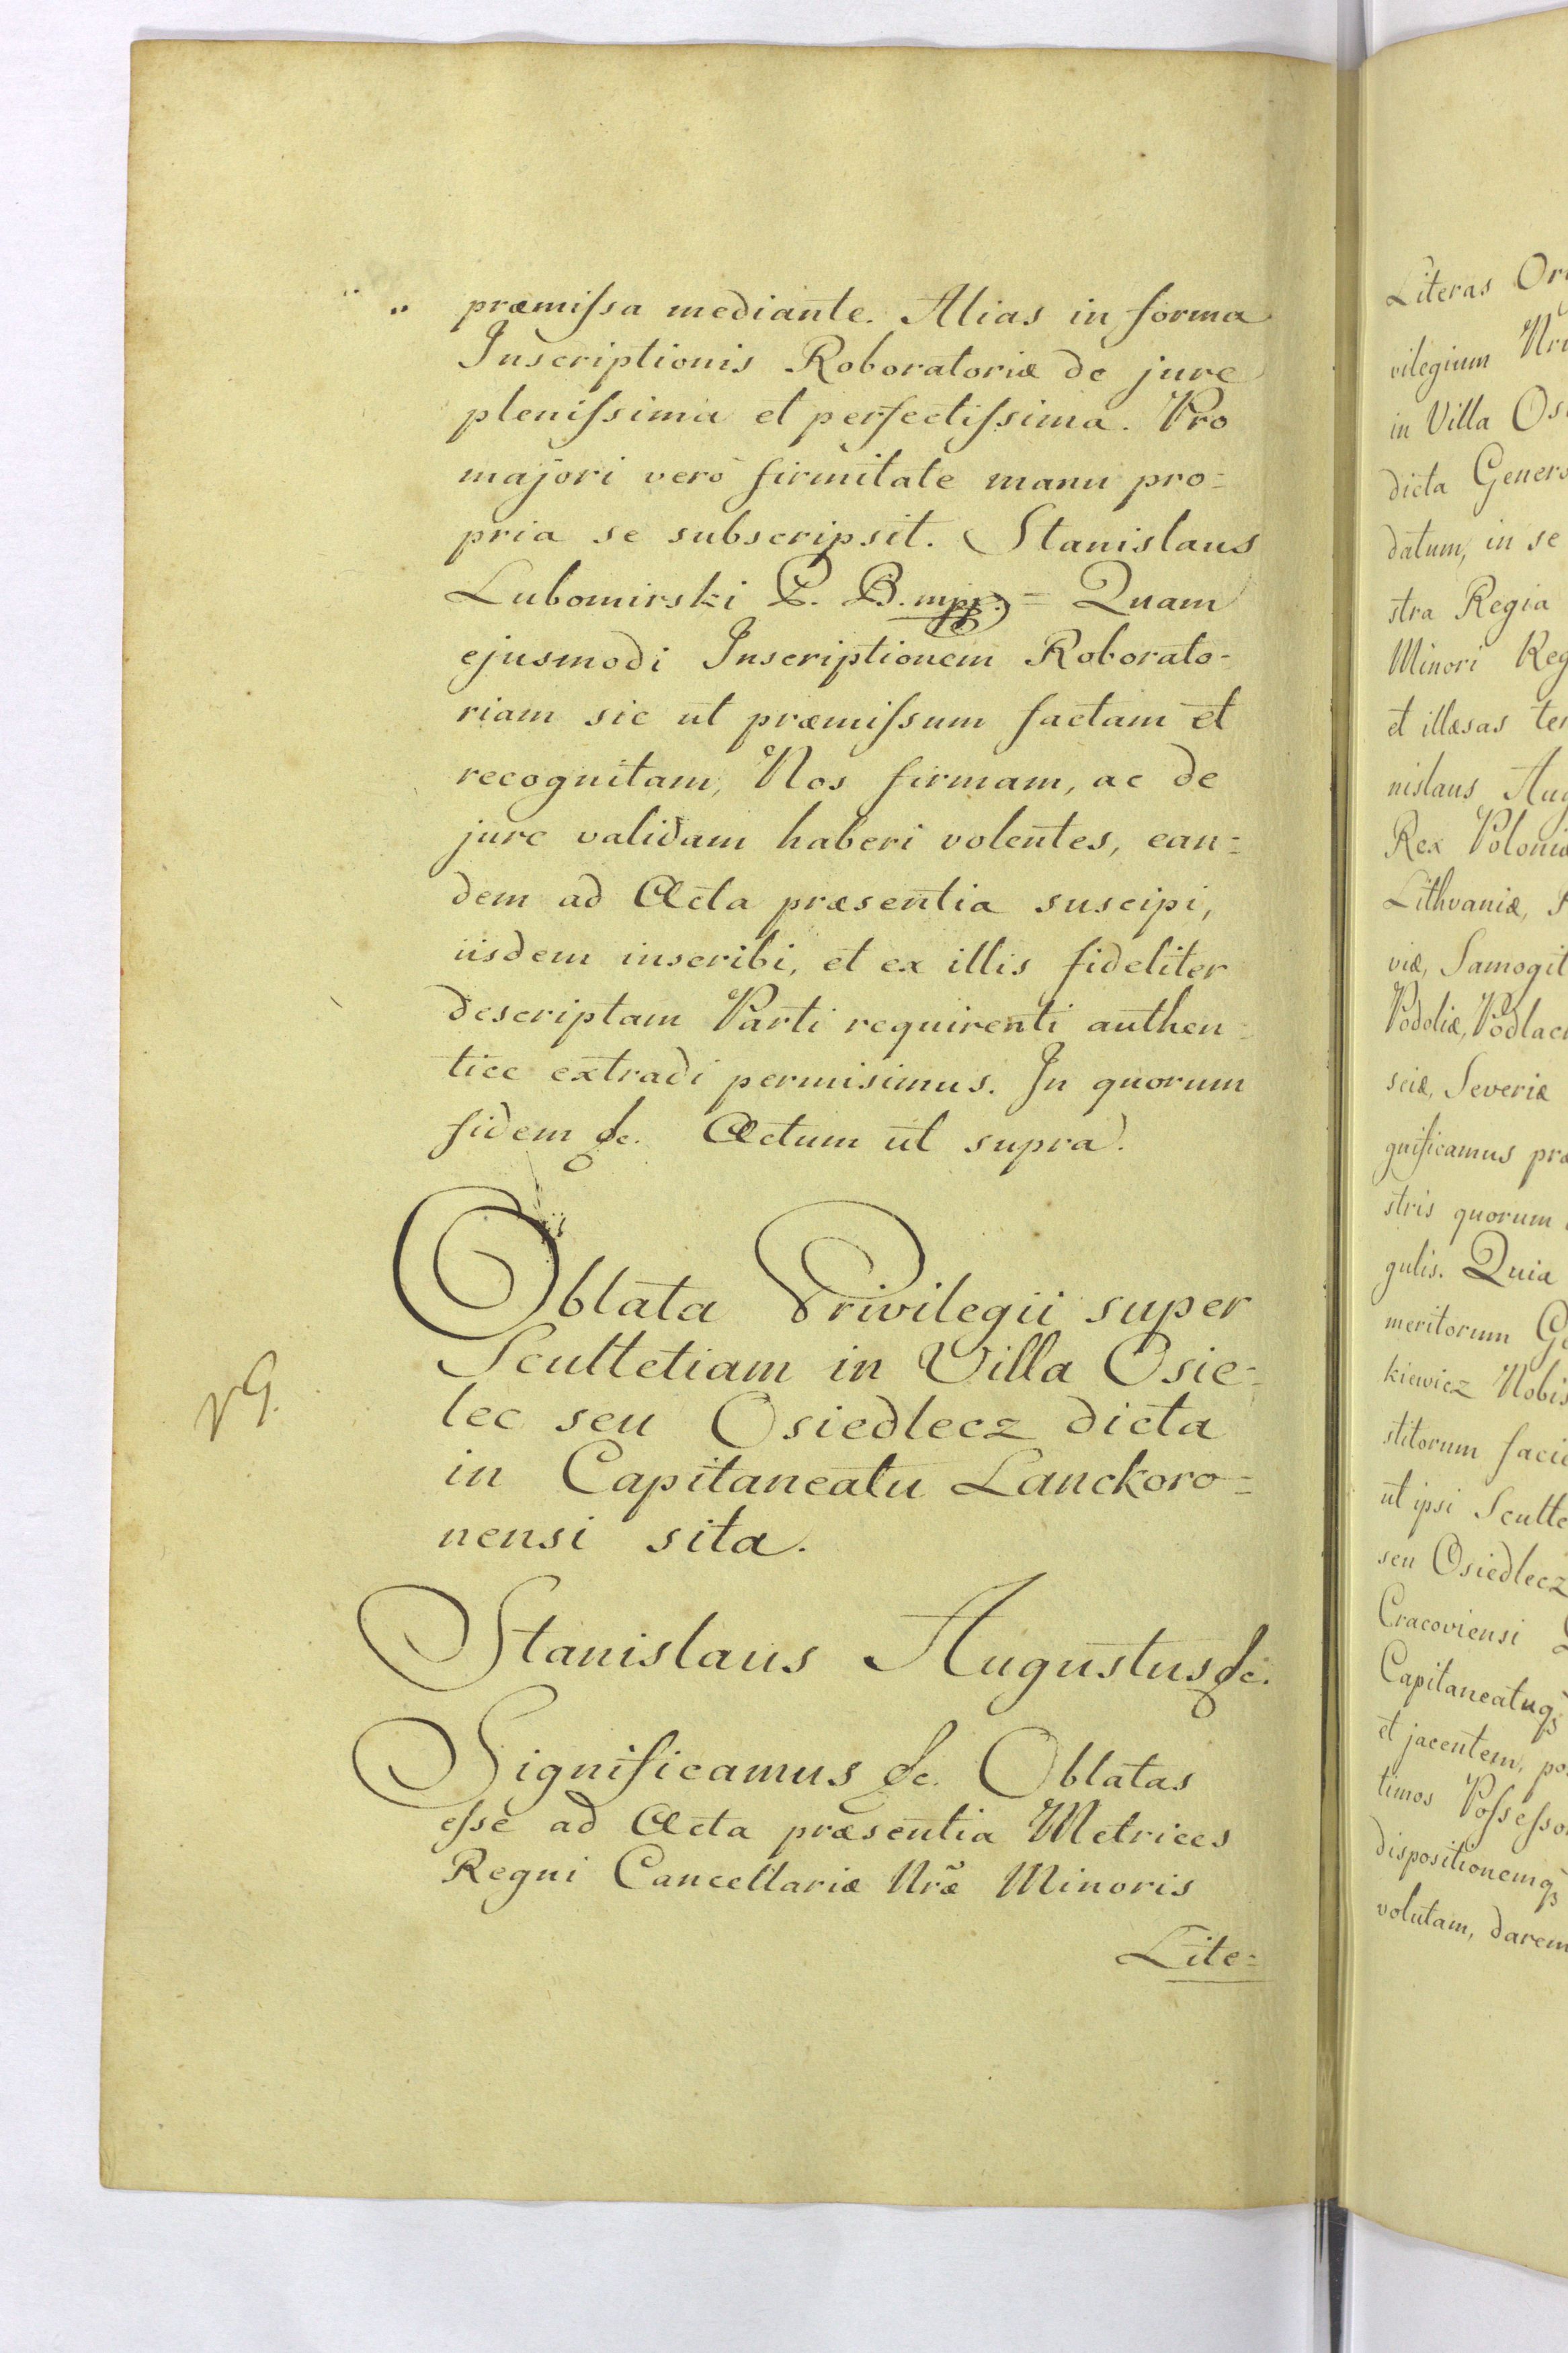 præmiſsa mediante. Alias in forma
Inscriptionis Roboratoriæ de jure
pleniſsima et perfectiſsima. Pro
majori verò firmitate manu pro=
pria se subscripsit. Stanislaus
Lubomirski P. B. mpp. = Quam
ejusmodi Inscriptionem Roborato-
riam sic ut præmiſsum factam et
recognitam, Nos firmam, ac de
jure validam haberi volentes, ean=
dem ad Acta præsentia suscipi,
iisdem inscribi, et ex illis fideliter
descriptam Parti requirenti authen=
tice extradi permisimus. In quorum
fidem &c. Actum ut supra.
Oblata Privilegii super
Scultetiam in Villa Osie-
lec seu Osiedlecz dicta
in Capitaneatu Lanckoro=
nensi sita.
Stanislaus Augustus &c.
Significamus &c. Oblatas
eſse ad Acta præsentia Metrices
Regni Cancellariæ Nræ Minoris
Lite=
Literas
vilegium
in Villa
dicta
datum, in se
stra Regia
Minori
et illæsas
nislaus
Rex
Lithvaniæ,
viæ,
Podoliæ,
sciæ, Severiæ
gnificamus
stris quorum
gulis. Quia
meritorum
kiewicz
stitorum
ut ipsi
seu Osiedlecz
Cracoviensi
Capitaneatuq;
et jacentem,
timos
dispositionemq;
volutam,